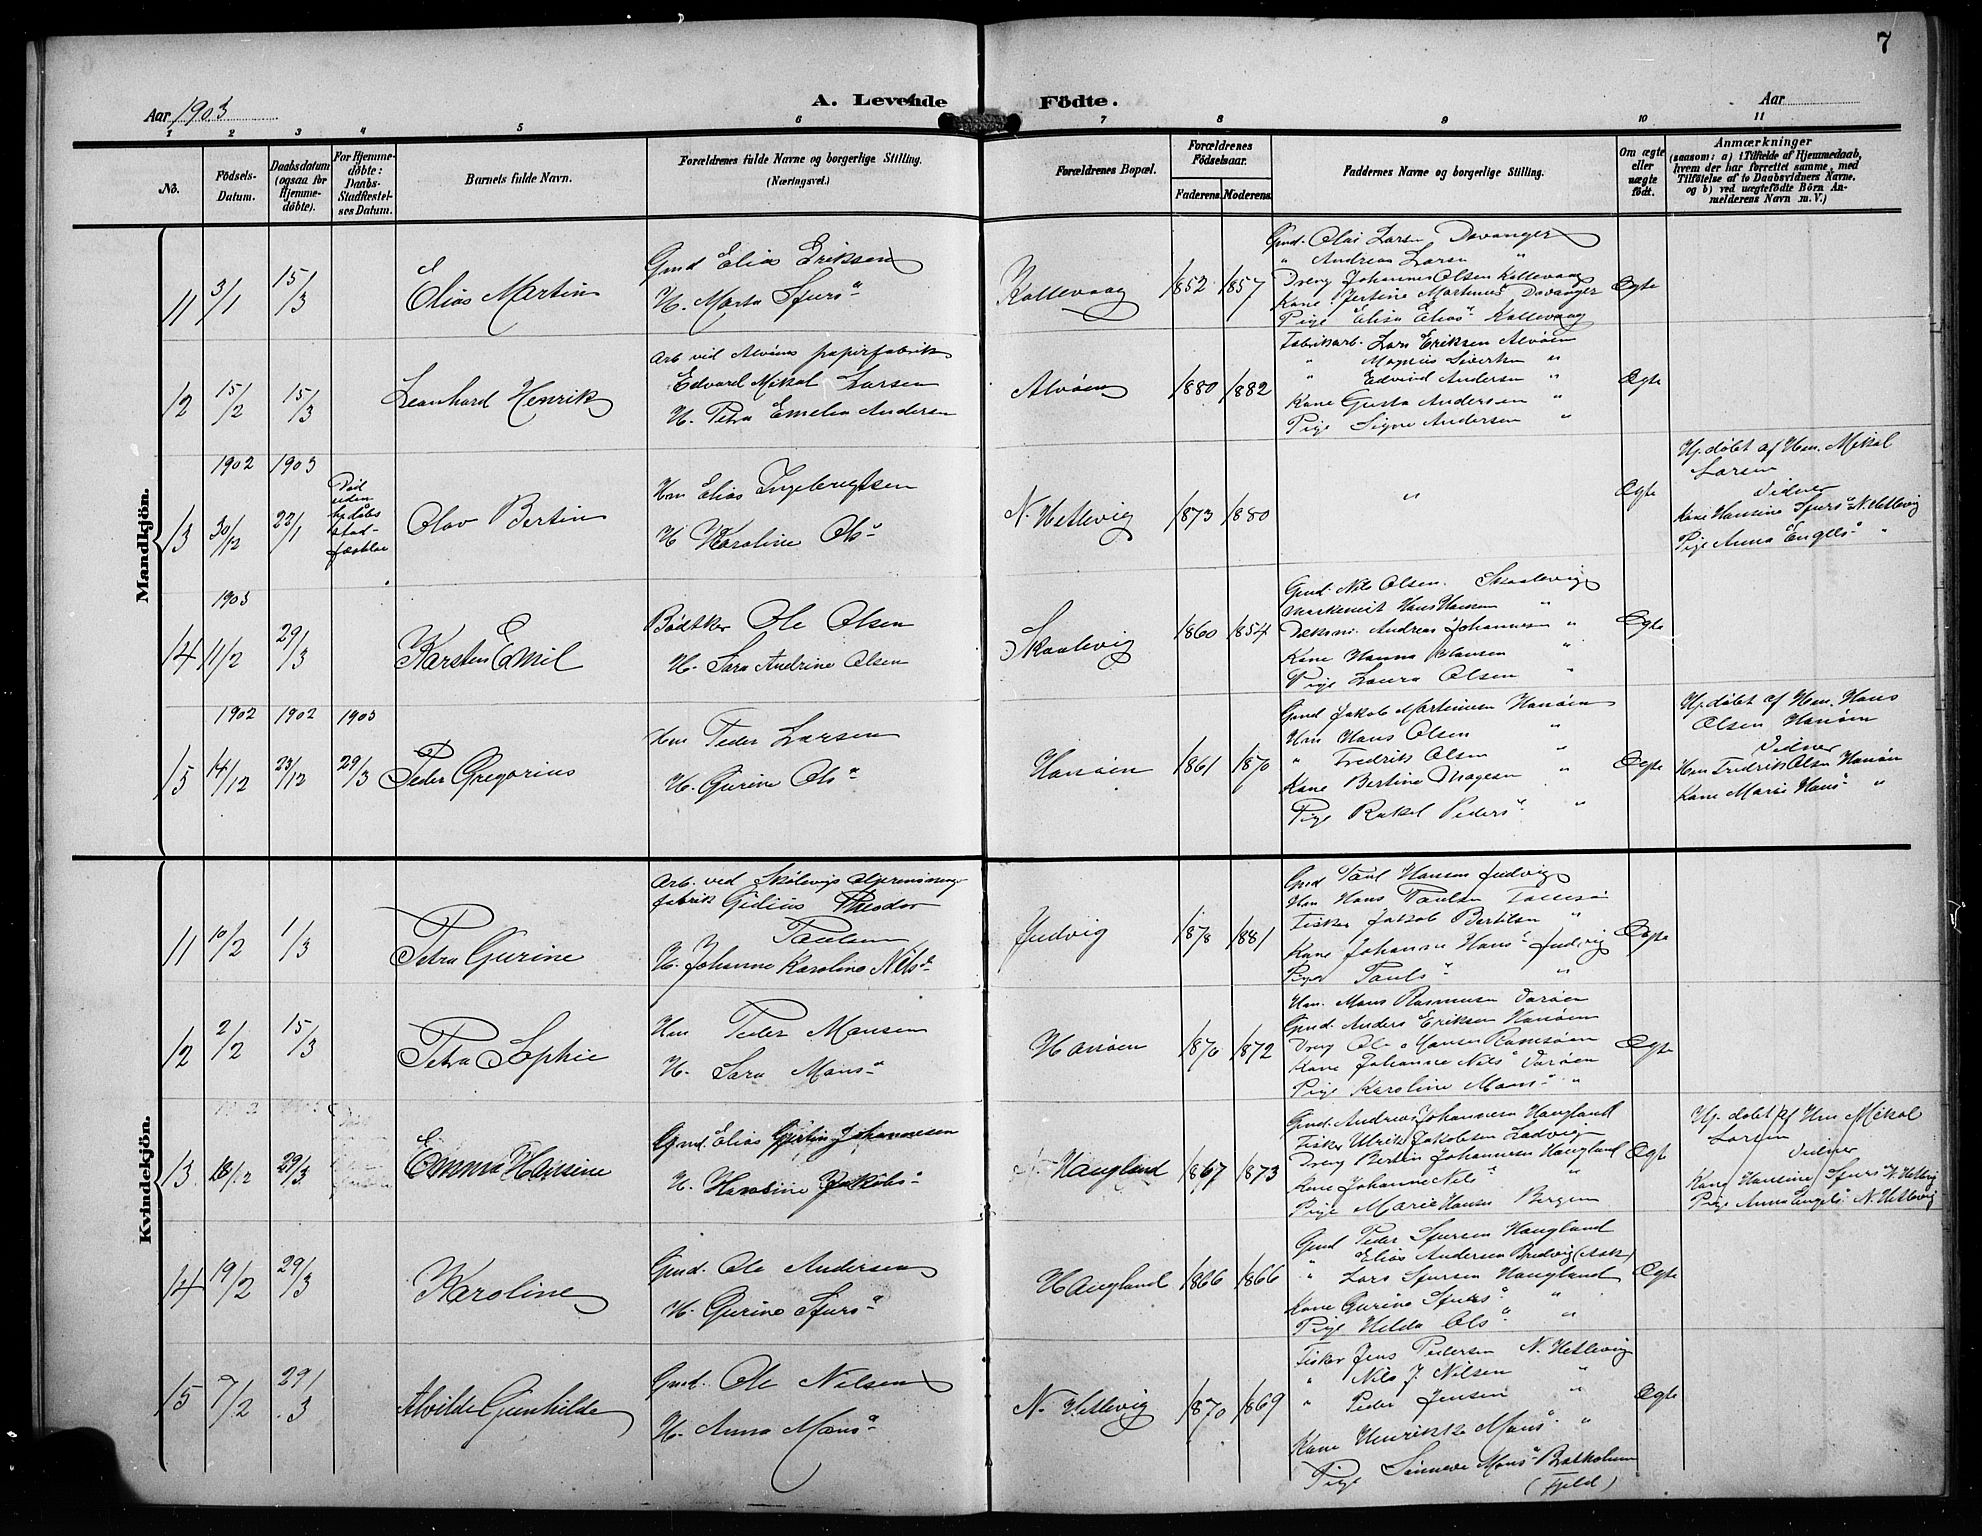 7
A. Levende Födte.
Aar 1903
Aar
1 2 3 4 5 6 7 8 9 10 11
No.
Födsels-Datum.
Daabsdatum (ogsaa for Hjemme-döbte).
For Hjemme-döbte: Daabs-Stadfæstel-ses Datum.
Barnets fulde Navn.
Forældrenes fulde Navne og borgerlige Stilling.
(Næringsvei.)
Forældrenes Bopæl.
Forældrenes Födselsaar.
Faderens. Moderens.
Faddernes Navne og borgerlige Stilling.
Om ægte eller uægte födt.
Anmærkninger
(saasom: a) i Tilfælde af Hjemmedaab,
hvem der har forrettet samme, med
Tilföielse af to Daabsvidners Navne.
og b) ved uægtefödte Börn An-
melderens Navn m. V.)
Mandkjön.
11 3/1 15/3 Elias Martin
Gmd Elias Eriksen
H. Marta Sjurs"
Kollevaag 1852 1857
Gmd. Olai Larsen Davanger
" Andreas Larsen "
Dreng Johannes Olsen Kollevaag
Kone Jertine Martinus" Davanger
Pige Elisa Elias" Kollevaag
Ægte
12 15/2 15/3 Leonhard Henrik
Arb ved Alvöens papirfabrik
Edvard Mikal Larsen
H. Petra Emelia Andersen
Alvöen 1880 1882
Fabrikarb. Lars Eriksen Alvöen
" Magnus Sivertsen "
" Edvind Andersen "
Kone Gusta Andersen "
Pige Signe Andersen "
Ægte
13 1902 30/12 1903 22/1
Död
uden
hj.daabs
stad-
fæstelse
Olav Bertin
Hm Elias Ingebrigtsen
H Karoline Ols"
N. Hetlevig 1873 1880
"
Ægte
Hj. döbt af Hm. Mikal
Larsen
Vidner
Kone Hansine Sjurs" N. Hetlevig
Pige Anna Engels" "
14 1903 11/2 29/3 Karsten Emil
Bödtker Ole Olsen
H. Sara Andrine Olsen
Skaalevig 1860 1854
Gmd. Nils Olsen. Skaalevig
Hans Hansen "
Andreas Johannesen "
Kone Hanna Hansen "
Pige Laura Olsen "
Ægte
15 1902 14/12 1902 23/12 1903 29/3 Peder Gregorius
Hm Peder Larsen
H. Gurine Ols"
Hanöen 1861 1870
Gmd Jakob Martinusen Hanöen
Hm Hans Olsen "
" Fredrik Olsen "
Kone Bertine Magnesen "
Pige Rakel Peders" "
Ægte
Hj. döbt af Hm. Hans
Olsen Hanöen
Vidner
Hm Fredrik Olsen Hanöen
Kone Marie Hans" "
Kvindekjön.
11 10/2 1/3 Petra Gurine
Arb. ved Skölevigs
fabrik Gidius Theodor
Paulsen
H. Johanne Karoline Nils"
Judvig 1878 1881
Gmd Paul Hansen Judvig
Hm Hans Paulsen
Fisker Jakob Bertilsen "
Kone Johanna Hans" Judvig
Pige Pauls" "
Ægte
12 2/2 15/3 Petra Sophie
Hm Peder Mansen
H. Sara Mons"
Hanöen 1870 1872
Hm. Mons Rasmusen Varöen
Gmd. Anders Eriksen Hanöen
Dreng Ole Monsen Ramsöen
Kone Johanne Nils" Varöen
Pige Karoline Mons" "
Ægte
13 18/12 29/3 Emma Hansine
Gmd. Elias Gjertin Johannesen
H. Hansine Jakobs"
Haugland 1867 1873
Gmd. Andreas Johannesen Haugland
Fisker Ulrik Jakobsen Ladvig
Dreng Bertin Johannesen Haugland
Kone Johanne Nils" "
Pige Marie Hansen Bergen
Ægte
Hj. döbt af Hm Mikal
Larsen
Vidner
Kone Hansine Sjurs" N. Hetlevig
Pige Anna Engels" N. Hetlevig
14 19/2 29/3 Karoline
Gmd. Ole Andersen
H. Gurine Sjurs"
Haugland 1866 1866
Gmd Peder Sjursen Haugland
" Elias Andersen Bredvig (Ask)
" Lars Sjursen Haugland
Kone Gurine Sjurs" "
Pige Helda Ols" "
Ægte
15 7/2 29/3 Alvilde Gunhilde
Gmd. Ole Nilsen
H. Anna Mons"
N. Hetlevig 1870 1869
Fisker Jens Pedersen N. Hetlevig
" Nils J. Nilsen "
" Peder Jensen "
Kone Henrikke Mons" "
Pige Sinneve Mons" Bratholmen
(Fjeld)
Ægte